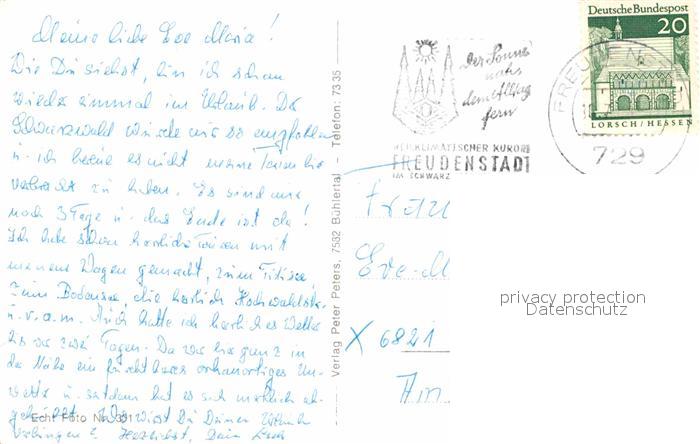 Meine liebe Eve Maria!
Wie Du siehst, bin ich schon
wieder einmal im Urlaub. Der
Schwarzwald wurde mir so empfohlen
u. ich bereue es nicht meine hier
verbracht zu haben. Es sind nur
noch 3 Tage u. das Ende ist da!
Ich habe schon herrliche Touren mit
meinem Wagen gemacht, zum Titisee
zum Bodensee, die herrlich Hochwaldstr.
u.v.a.m. Auch hatte ich herrliches Wetter
bis vor zwei Tagen. Da war hier ganz in
der Nähe ein furchtbares orkanartiges Un-
wetter u. seitdem hat es sich merklich ab-
gekühlt. Wo wirst Du Deinen Urlaub
verbringen? Herzlichst, Dein
Echt Foto Nr. 391
Verlag Peter Peters, 7582 Bühlertal - Telefon: 7335
Der Sonne
nah
dem Alltag
fern
HEILKLIMATISCHER KURORT
FREUDENSTADT
IM SCHWARZ
FREUDENST
729
Deutsche Bundespost
20
LORSCH/HESSEN
Frau
Eve-M
X 6821
privacy protection
Datenschutz